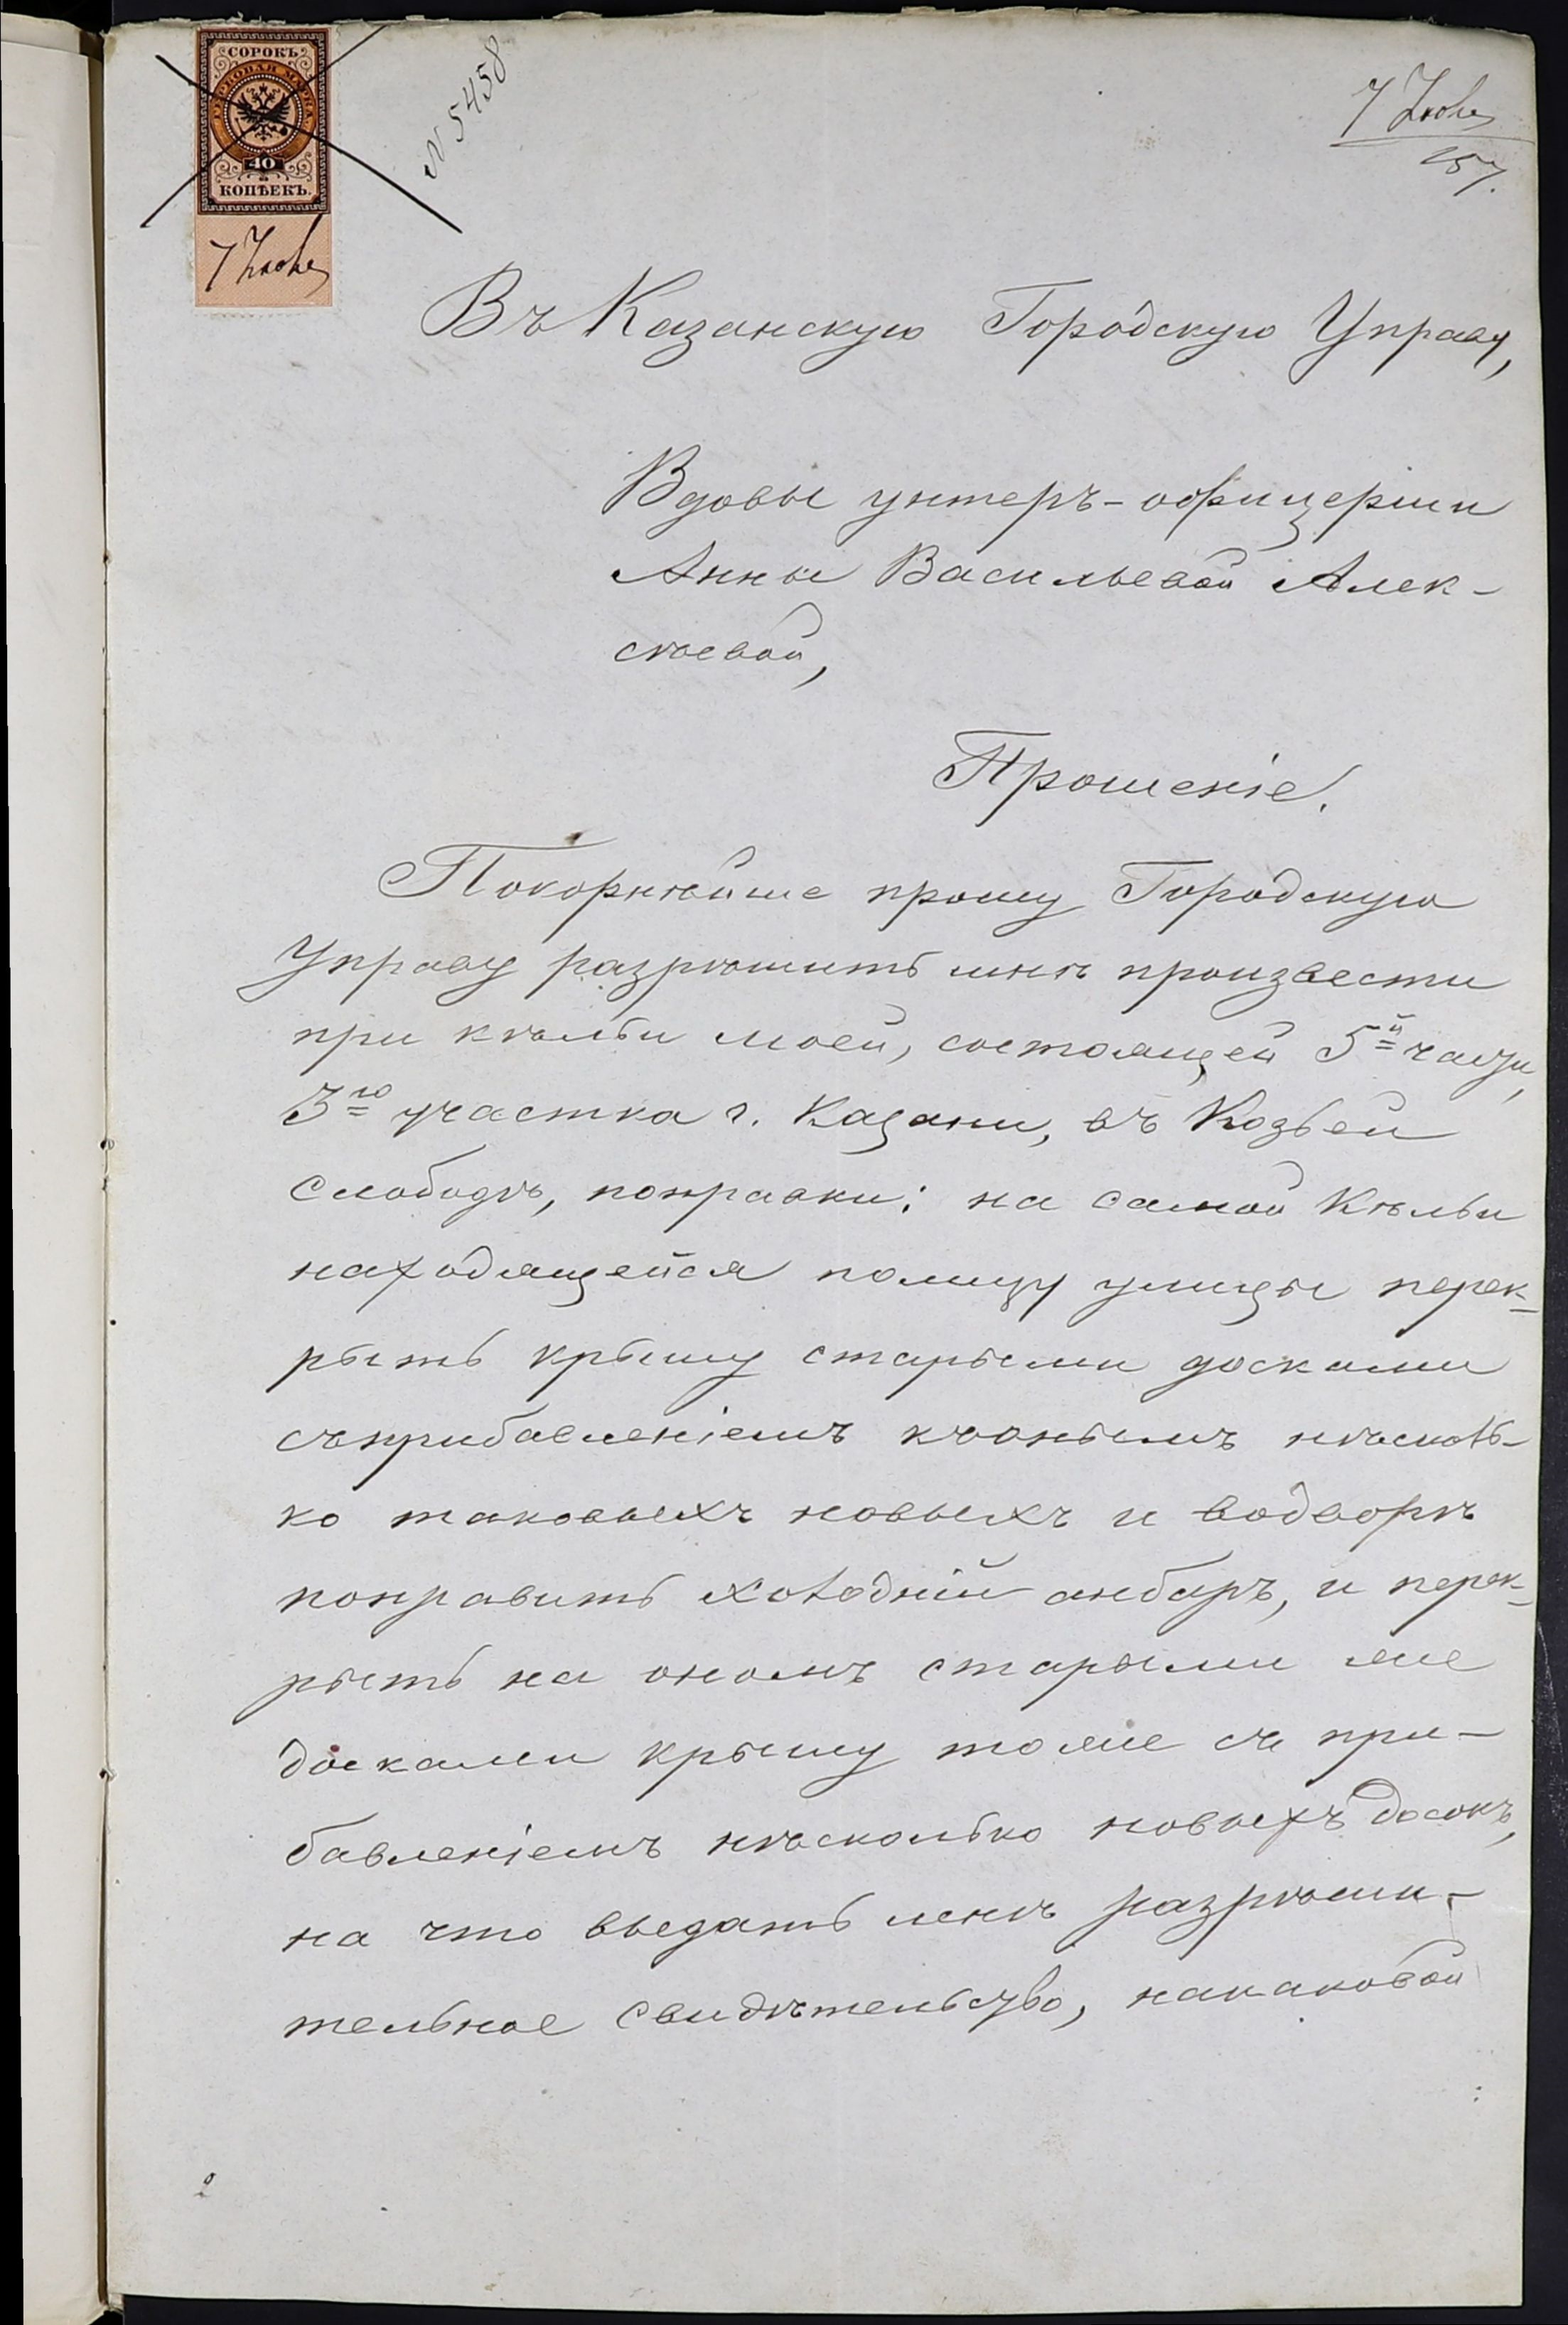 СОРОКЪ
ГЕРБОВАЯ МАРКА
40
КОПѢЕКЪ.
7 Іюня
N 5458
7 Іюня
257.
Въ Казанскую Городскую Управу,
Вдовы унтеръ-офицерши
Анны Васильевой Алек-
сѣевой,
Прошеніе.
Покорнѣйше прошу Городскую
Управу разрѣшить мнѣ произвести
при кѣльи моей, состоящей 5й части,
3го участка г. Казани, въ Козьей
слободѣ, поправки: на самой Кѣльи
находящейся полицу улицы перек-
рыть крышу старыми досками
съприбавленіемъ къонымъ нѣсколь-
ко таковыхъ новыхъ и водворѣ
поправить холодній анбаръ, и перек-
рыть на ономъ старыми же
досками крышу тоже съ при-
бавленіемъ нѣсколько новыхъ досокъ,
на что выдать мнѣ разрѣши-
тельное свидѣтельство, накаковой